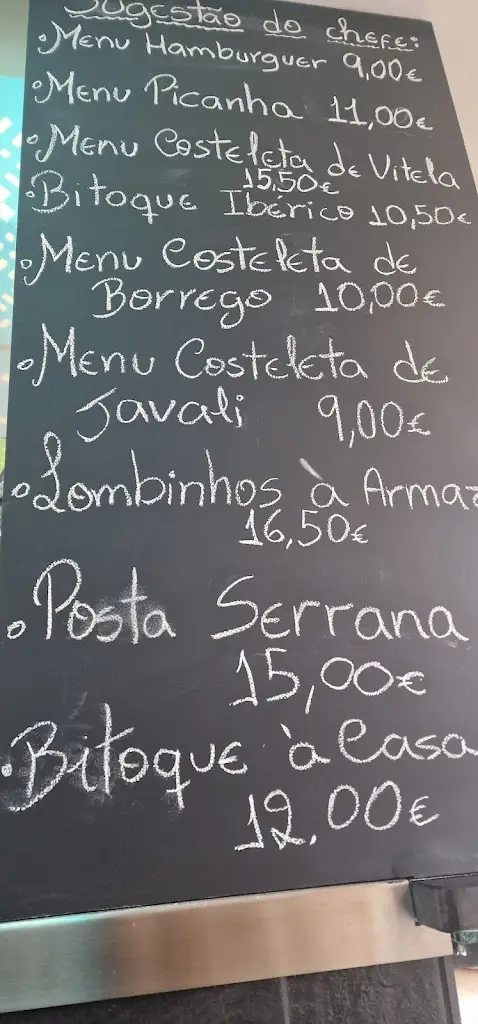 Sugestão do chefe:
• Menu Hamburguer 9,00€
• Menu Picanha 11,00€
• Menu Costeleta de Vitela
15,50€
• Bitoque Ibérico 10,50€
• Menu Costeleta de
Borrego 10,00€
• Menu Costeleta de
Javali 9,00€
• Lombinhos à Armaz
16,50€
• Posta Serrana
15,00€
• Bitoque à Casa
12.00€